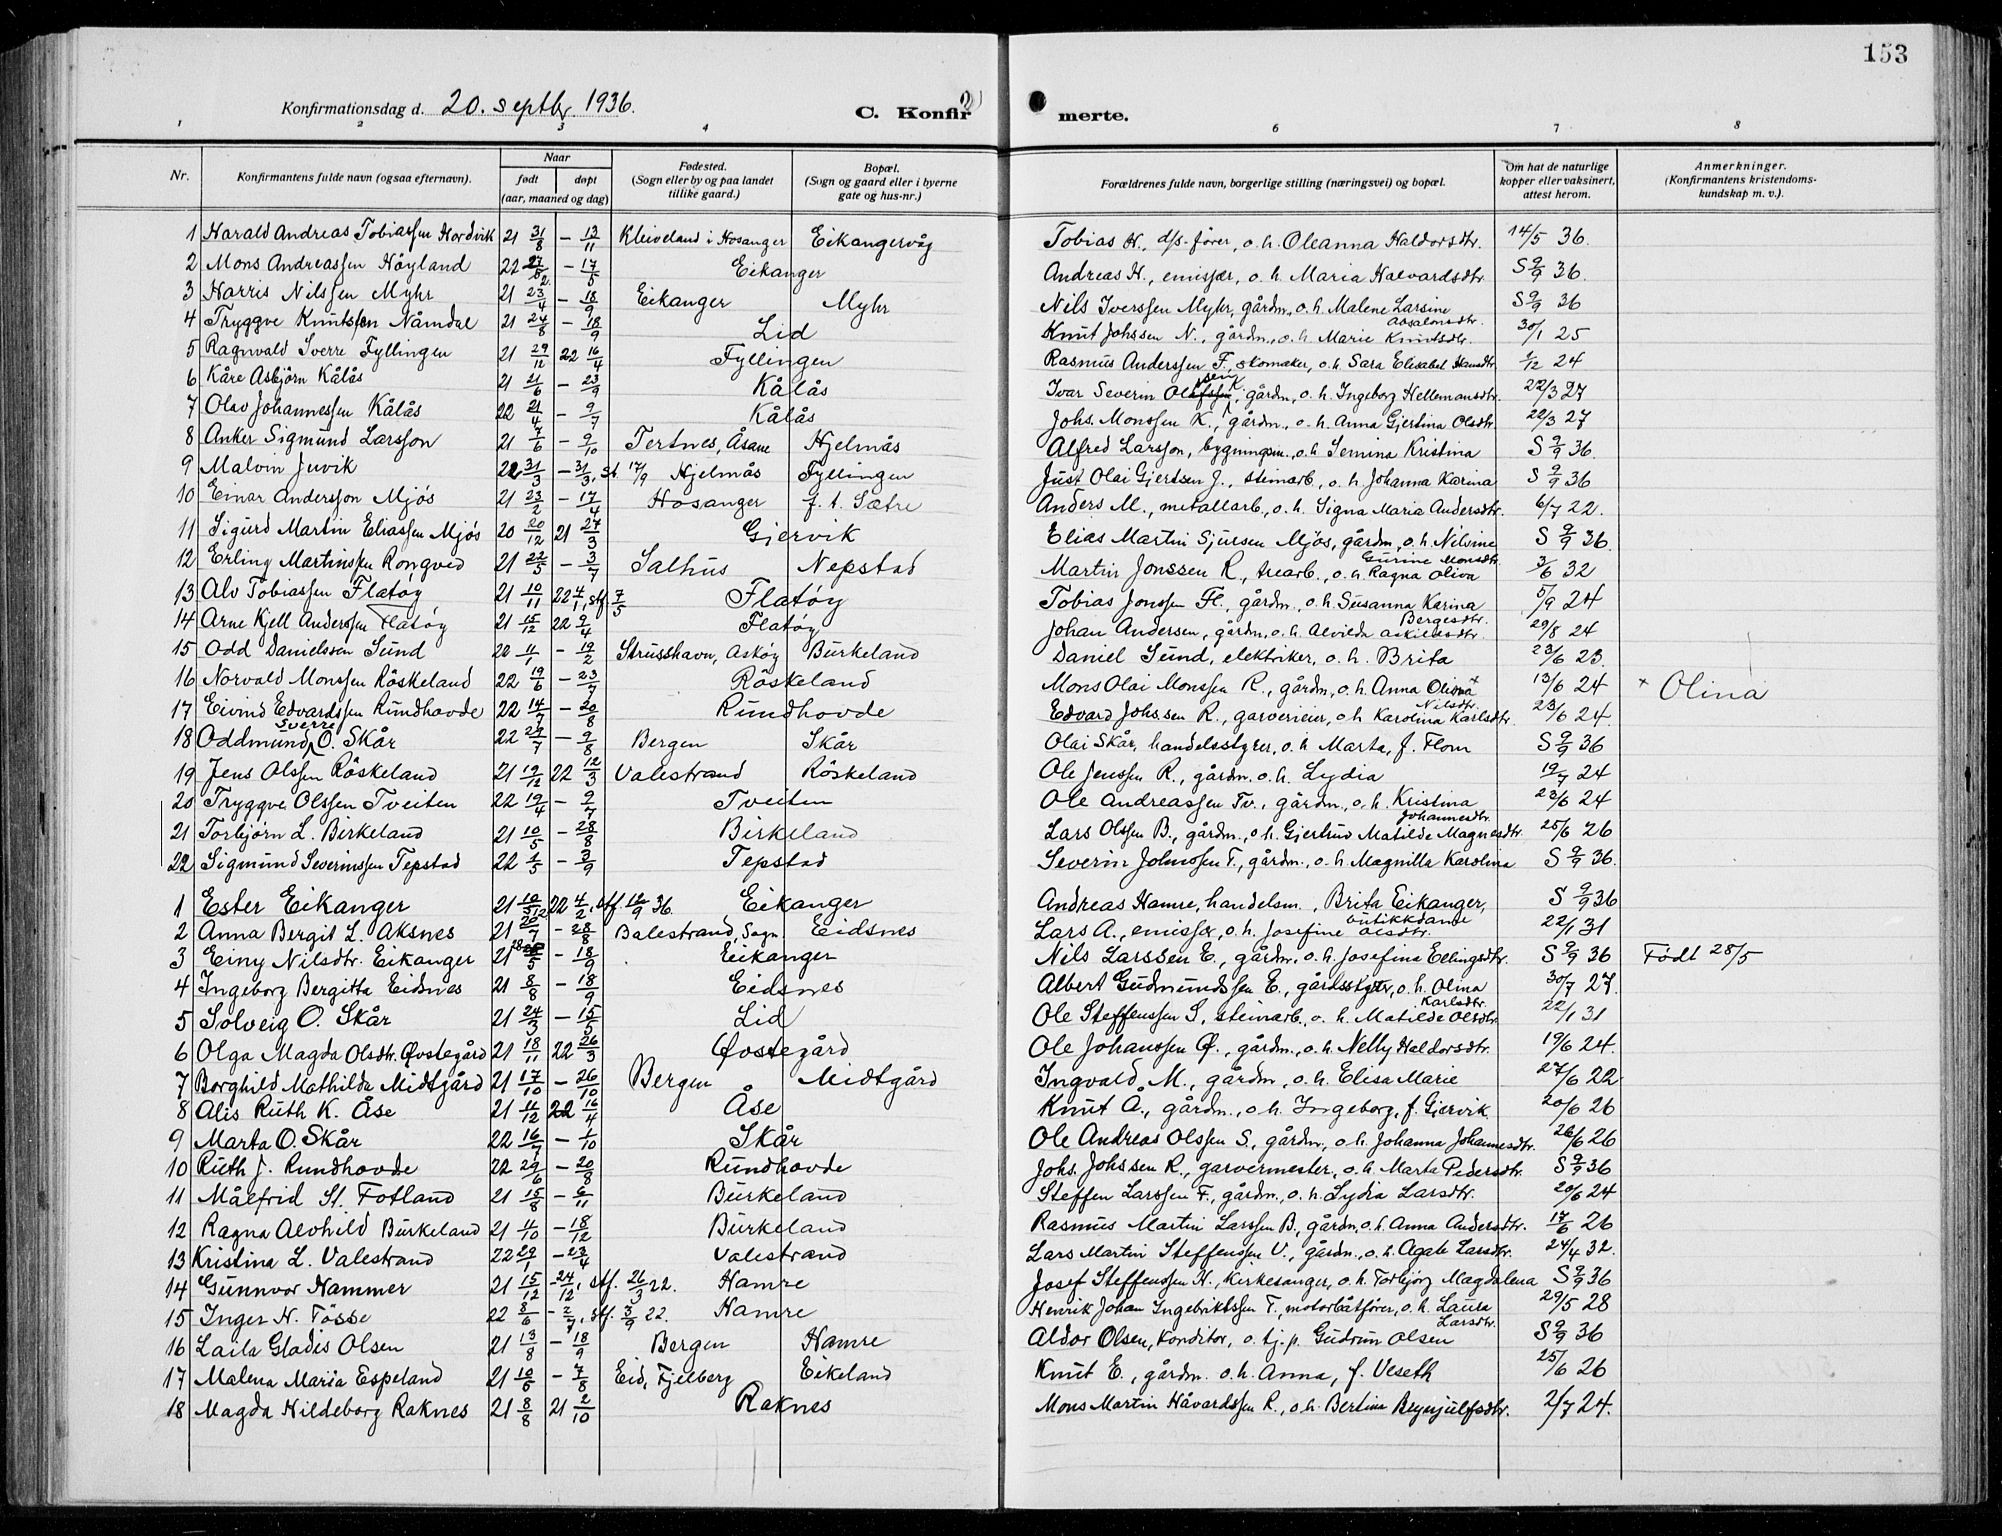 153
Konfirmationsdag d. 20. septbr. 1936.
C. Konfirmerte.
1 2 3 4 6 7 8
Nr.
Konfirmantens fulde navn (ogsaa efternavn).
Naar
født døpt
(aar, maaned og dag)
Fødested.
(Sogn eller by og paa landet
tillike gaard.)
Bopæl.
(Sogn og gaard eller i byerne
gate og hus-nr.)
Forældrenes fulde navn, borgerlige stilling (næringsvei) og bopæl.
Om hat de naturlige
kopper eller vaksinert,
attest herom.
Anmerkninger.
(Konfirmantens kristendoms-
kundskap m. v.).
1 Harald Andreas Tobiassen Hordvik 21 31/8 – 13/11 Kleiveland i Hosanger Eikangervåg Tobias H., d/s-fører, o. h. Oleanna Haldorsdtr. 14/5 36.
2 Mons Andreassen Höyland 22 – 17/5 Eikanger Andreas H., emissær, o. h. Maria Halvardsdtr. S 9/9 36.
3 Harris Nilssen Myhr 21 23/4 – 18/9 Eikanger Myhr Nils Iverssen Myhr, gårdm., o. h. Malene Larsine Absalonsdtr. S 9/9 36
4 Tryggve Knutssen Nåmdal 21 24/8 – 18/9 Lid Knut Johssen N., gårdm., o. h. Marie Knutsdtr. 30/1 25
5 Ragnvald Sverre Fyllingen 21 29/12 22 16/4 Fyllingen Rasmus Anderssen F., skomaker, o. h. Sara Elisabet Hansdtr. 1/12 24
6 Kåre Asbjörn Kålås 21 21/6 – 23/9 Kålås Ivar Severin Olsen K., gårdm., o. h. Ingeborg Hellemansdtr. 22/3 27
7 Olav Johannessen Kålås 22 21/4 – 9/7 Kålås Johs. Monssen K., gårdm., o. h. Anna Gjertina Olsdtr. 22/3 27
8 Anker Sigmund Larsson 21 7/6 – 9/10 Tertnes, Åsane Hjelmås Alfred Larsson, bygningsm., o. h. Semina Kristina S 9/9 36.
9 Malvin Juvik 22 31/3 – 31/3, st. 17/9 Hjelmås Fyllingen Just Olai Gjertsen J., steinarb., o. h. Johanna Karina S 9/9 36
10 Einar Anderssen Mjös 21 23/2 – 17/4 Hosanger f. t. Sætre Anders M., metallarb., o. h. Signa Maria Andersdtr. 6/7 22.
11 Sigurd Martin Eliassen Mjös 20 20/12 21 27/3 Gjervik Elias Martin Sjursen Mjös, gårdm., o. h. Nilsine Gurine Monsdtr. S 9/9 36.
12 Erling Martinssen Rongved 21 22/5 – 3/7 Salhus Nepstad Martin Jonssen R., trearb., o. h. Ragna Oliva 3/6 32
13 Alv Tobiassen Flatöy 21 10/11 22 4/1, stf. 7/5 Flatöy Tobias Jonssen Fl., gårdm., o. h. Susanna Karina Bergesdtr. 5/9 24
14 Arne Kjell Anderssen Flatöy 21 15/12 22 9/4 Flatöy Johan Andersen, gårdm., o. h. Alvilda Askildsdtr. 29/8 24
15 Odd Danielssen Sund 22 11/1 – 19/2 Strusshavn, Asköy Burkeland Daniel Sund, elektriker, o. h. Brita 23/6 23.
16 Norvald Monssen Röskeland 22 19/6 – 23/7 Röskeland Mons Olai Monssen R., gårdm., o. h. Anna Olivia+ Nilsdtr. 13/6 24 + Olina
17 Eivind Edvardssen Rundhovde 22 14/7 – 20/8 Rundhovde Edvard Johs.sen R., garverieier, o. h. Karolina Karlsdtr. 23/6 24.
18 Oddmund Sverre O. Skår 22 27/7 – 9/8 Bergen Skår Olai Skår, handelsstyrer, o. h. Marta, f. Flom S 9/9 36
19 Jens Olssen Röskeland 21 19/12 22 12/3 Valestrand Röskeland Ole Jenssen R., gårdm. o. h. Lydia 19/7 24
20 Tryggve Olssen Tveiten 22 19/4 – 9/7 Tveiten Ole Andreassen Tv., gårdm., o. h. Kristina Johannesdtr. 23/6 24
21 Torbjörn L. Birkeland 21 10/5 – 28/8 Birkeland Lars Olssen B., gårdm., o. h. Gjertrud Matilde Magnesdtr. 25/6 26
22 Sigmund Severinssen Tepstad 22 1/5 – 3/9 Tepstad Severin Johnssen T., gårdm., o. h. Magnilla Karolina S 9/9 36.
1 Ester Eikanger 21 10/12 22 4/2, stf. 12/9 36. Eikanger Andreas Hamre, handelsm., Brita Eikanger, butikkdame S 9/9 36
2 Anna Bergit L. Aksnes 21 20/7 – 28/8 Balestrand, Sogn Eidsnes Lars A., emissær, o. h. Josefine Olsdtr. 22/1 31
3 Einy Nilsdtr. Eikanger 21 28/5 – 18/9 Eikanger Nils Larssen E., gårdm., o. h. Josefina Ellingsdtr. S 9/9 36 Födt 28/5
4 Ingeborg Bergitta Eidsnes 21 8/8 – 18/9 Eidsnes Albert Gudmundssen E., gårdsstyrer, o. h. Olina Karlsdtr. 30/7 27.
5 Solveig O. Skår 21 24/3 – 15/5 Lid Ole Steffenssen S., steinarb., o. h. Matilde Olsdtr. 22/1 31
6 Olga Magda Olsdtr. Øvstegård 21 18/11 22 26/3 Øvstegård Ole Johanssen Ø., gårdm., o. h. Nelly Haldorsdtr. 19/6 24.
7 Borghild Mathilda Midtgård 21 17/10 – 26/10 Bergen Midtgård Ingvald M., gårdm., o. h. Elisa Marie 27/6 22
8 Alis Ruth K. Åse 21 11/12 22 16/4 Åse Knut Å., gårdm., o. h. Ingeborg, f. Gjervik. 20/6 26
9 Marta O. Skår 22 16/7 – 1/10 Skår Ole Andreas Olssen S., gårdm., o. h. Johanna Johannesdtr. 26/6 26
10 Ruth J. Rundhovde 22 29/6 – 20/8 Rundhovde Johs. Johssen R., garvermester, o. h. Marta Pedersdtr. S 9/9 36
11 Målfrid St. Fotland 21 15/8 – 6/11 Burkeland Steffen Larssen F., gårdm., o. h. Lydia Larsdtr. 20/6 24
12 Ragna Alvhild Burkeland 21 11/10 – 18/12 Burkeland Rasmus Martin Larssen B., gårdm., o. h. Anna Andersdtr. 17/6 26
13 Kristina L. Valestrand 22 29/1 – 23/4 Valestrand Lars Martin Steffenssen V., gårdm., o. h. Agate Larsdtr. 24/4 32.
14 Gunnvor Hammer 21 15/12 – 24/12, stf. 26/3 22. Hamre Josef Steffenssen H., kirkesanger, o. h. Torbjörg Magdalena S 9/9 36
15 Inger H. Tösse 22 8/6 – 2/7, stf. 3/9 22. Hamre Henrik Johan Ingebriktssen T., motorbåtförer, o. h. Laura Larsdtr. 29/5 28
16 Laila Gladis Olsen 21 13/8 – 18/9 Bergen Hamre Aldor Olsen, konditor, o. tj. p. Gudrun Olsen S 9/9 36
17 Malena Maria Espeland 21 10/6 – 7/8 Eid, Fjelberg Eikeland Knut E., gårdm. o. h. Anna, f. Veseth 25/6 26
18 Magda Hildeborg Raknes 21 8/8 21 2/10 Raknes Mons Martin Håvardssen R., o. h. Bertine Brynjulfsdtr. 2/7 24.